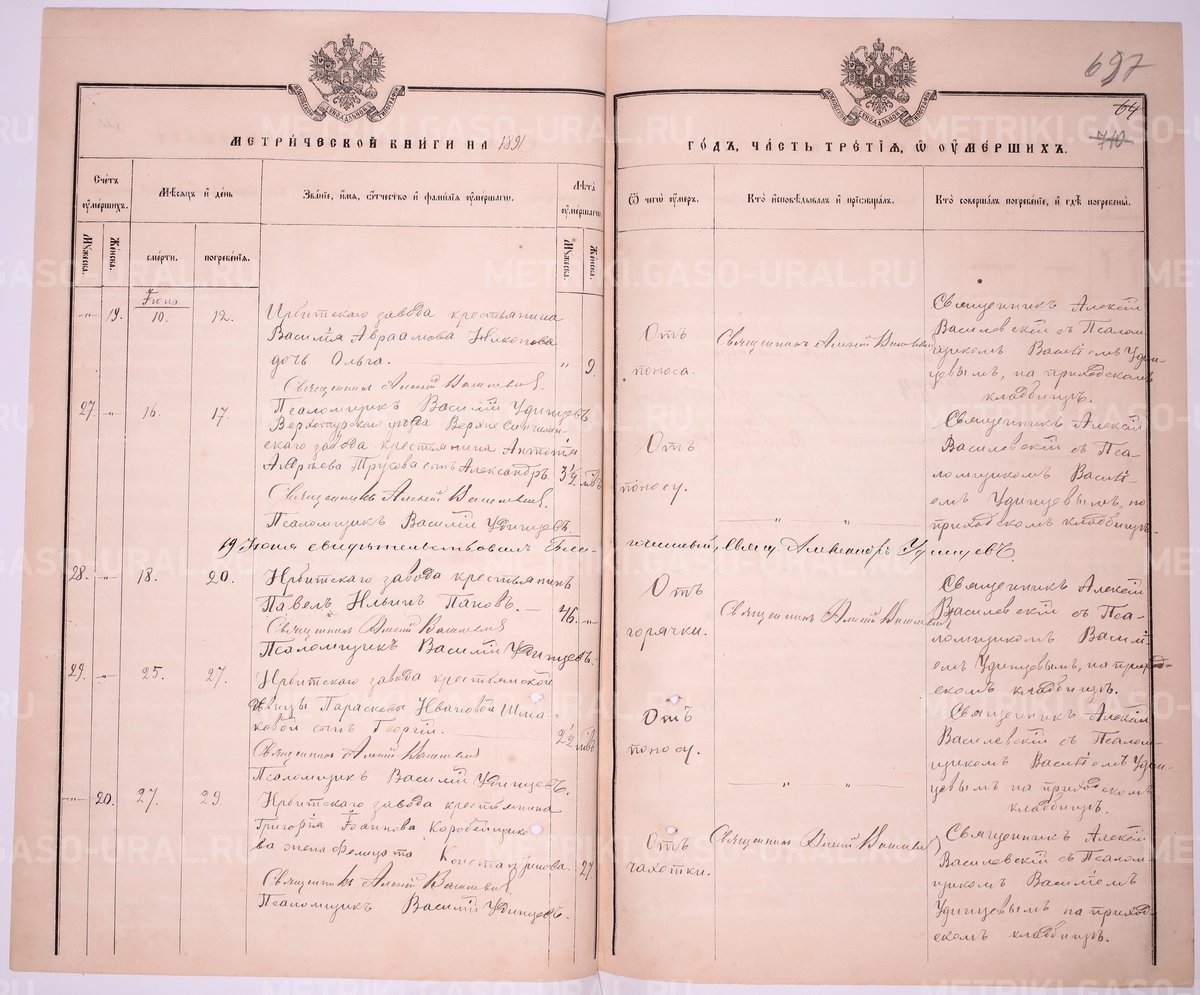 697
64
710
МЕТРИ́ЧЕСКОЙ КНИГИ НА 1891
ГО́ДЪ, ЧА́СТЬ ТРЕ́ТІЯ, Ѡ ОУМЕ́РШИХЪ.
Сче́тъ оумершихъ.
Мѣ́сяцъ и день
Зва́ніе, имя, ѻтчество и фамилія оумершагѡ.
Лѣта оумершагѡ.
Ѿ чегѡ оумеръ.
Кто исповѣдывалъ и пріобщалъ.
Кто совершалъ погребеніе, и гдѣ погребены.
Мꙋжеска.
Женска.
смерти.
погребенія.
Мꙋжеска.
Женска.
Іюнь
-„- 19. 10. 12. Ирбитскаго завода крестьянина
Василія Авраамова
дочь Ольга. „ 9.
Священникъ Алексій Василевскій.
Псаломщикъ Василій Удинцевъ.
Отъ
поноса.
Священникъ Алексій Василевскій
Священникъ Алексій
Василевскій съ Псалом-
щикомъ Василіемъ Удин-
цевымъ, на приходскомъ
кладбищѣ.
27. -„- 16. 17. Верхотурскаго уѣзда Верхне Синячихин-
скаго завода крестьянина Антонія
Андреева сынъ Александръ. 3 1/2
Священникъ Алексій Василевскій.
Псаломщикъ Василій Удинцевъ.
Отъ
поносу.
„ „
Священникъ Алексій
Василевскій съ Пса-
ломщикомъ Василі-
емъ Удинцевымъ, на
приходскомъ кладбищѣ.
19 Іюня свидѣтельствовалъ Благо-
чинный, Свящ. Александръ Удинцевъ
28. -„- 18. 20. Ирбитскаго завода крестьянинъ
Павелъ Ильинъ Пановъ. — 46. -„-
Священникъ Алексій Василевскій
Псаломщикъ Василій Удинцевъ.
Отъ
горячки.
Священникъ Алексій Василевскій
Священникъ Алексій
Василевскій съ Пса-
ломщикомъ Василі-
емъ Удинцевымъ, на приход-
скомъ кладбищѣ.
29. -„- 25. 27. Ирбитскаго завода крестьянской
дѣвицы Параскевы Ивановой Шма-
ковой сынъ Георгій. 2 1/2
Священникъ Алексій Василевскій
Псаломщикъ Василій Удинцевъ.
Отъ
поносу.
„ „
Священникъ Алексій
Василевскій съ Псалом-
щикомъ Василіемъ Удин-
цевымъ на приходскомъ
кладбищѣ.
-„- 20. 27. 29. Ирбитскаго завода крестьянина
Григорія Іоаннова Коробейщико-
ва жена Фелицата Константинова. 27.
Священникъ Алексій Василевскій
Псаломщикъ Василій Удинцевъ.
Отъ
чахотки.
Священникъ Алексій Василевскій
Священникъ Алексій
Василевскій съ Псалом-
щикомъ Василіемъ
Удинцевымъ на приход-
скомъ кладбищѣ.
METRIKI.GASO-URAL.RU